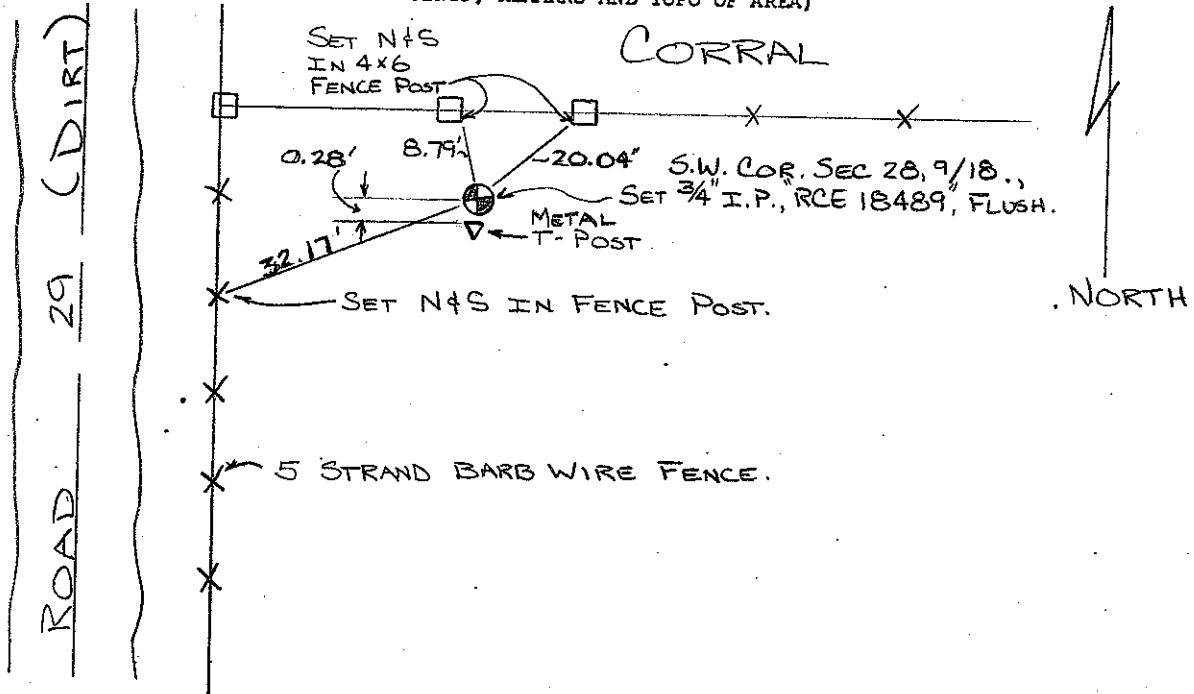 AND TOPO OF AREA)
SET N&S
IN 4x6
FENCE POST
CORRAL
0.28'
8.79'
20.04'
S.W. COR. SEC 28, 9/18.,
SET 3/4" I.P., "RCE 18489", FLUSH.
METAL
T-POST
32.17'
SET N&S IN FENCE POST.
NORTH
5 STRAND BARB WIRE FENCE.
ROAD 29 (DIRT)